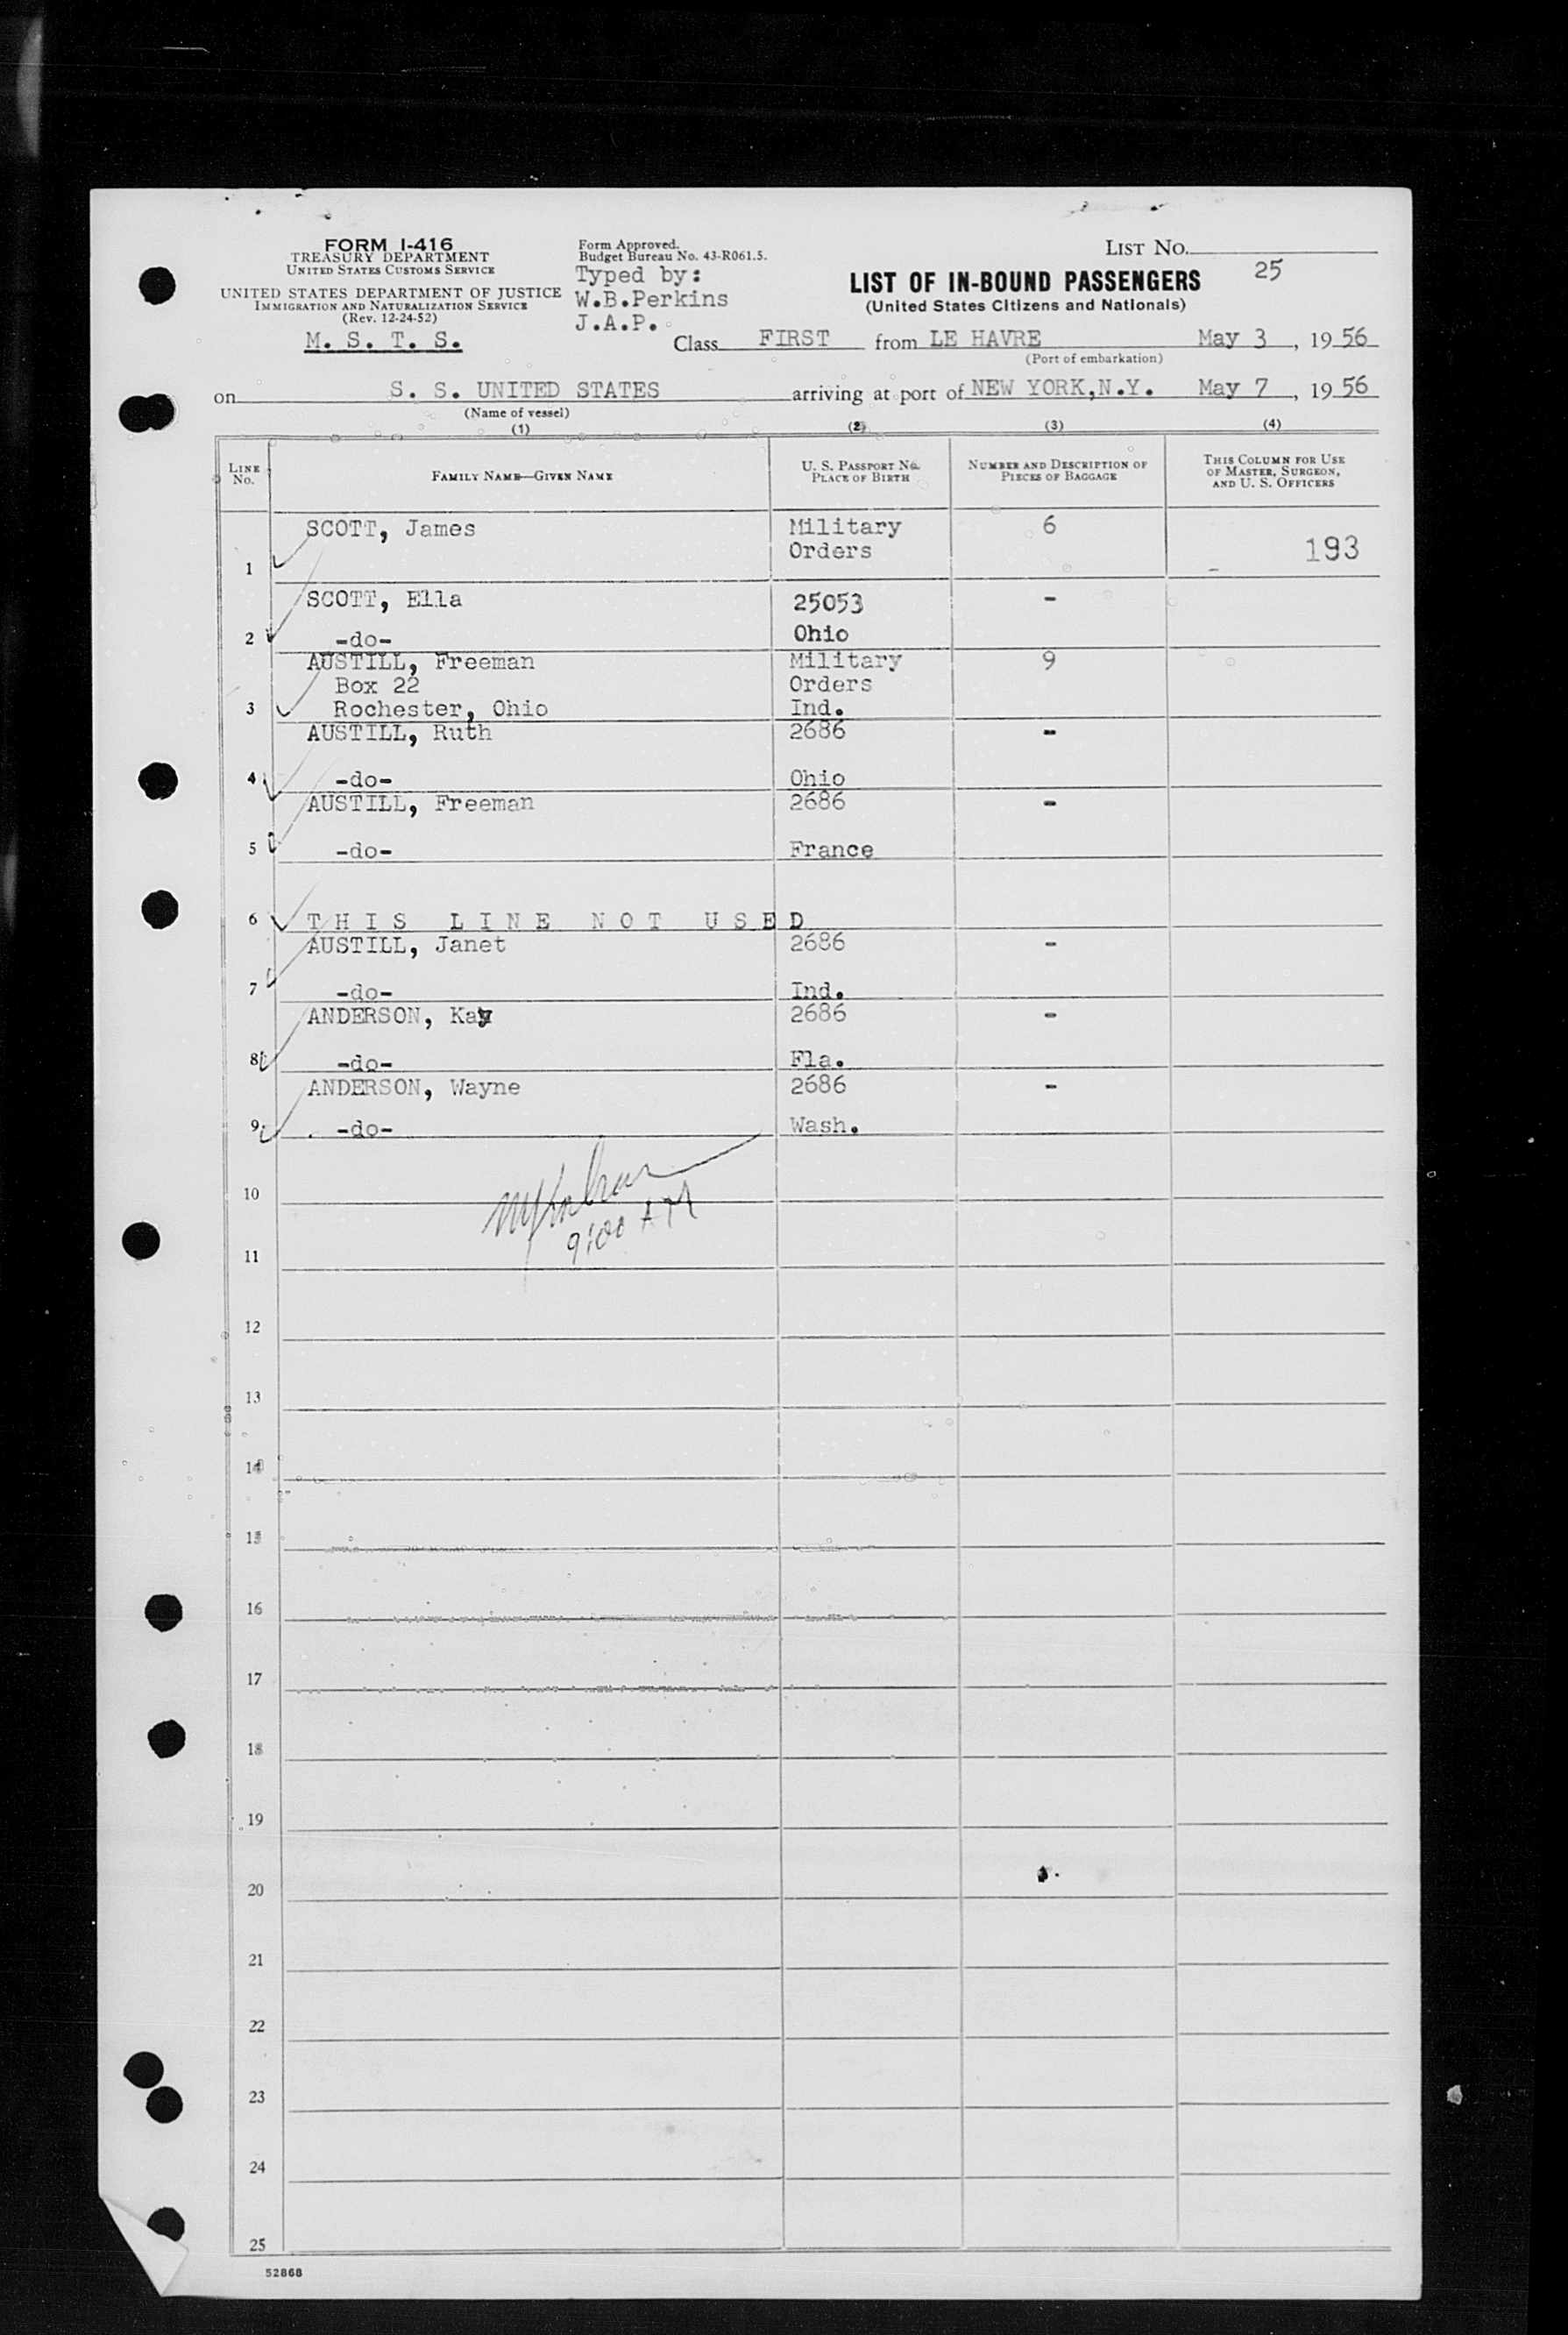 FORM I-416
TREASURY DEPARTMENT
UNITED STATES CUSTOMS SERVICE
UNITED STATES DEPARTMENT OF JUSTICE
IMMIGRATION AND NATURALIZATION SERVICE
(Rev. 12-24-52)
M. S. T. S.
Form Approved.
Budget Bureau No. 43-R061.5.
Typed by:
W.B.Perkins
J.A.P.
LIST NO.
25
LIST OF IN-BOUND PASSENGERS
(United States Citizens and Nationals)
Class FIRST from LE HAVRE May 3, 1956
(Port of embarkation)
on S. S. UNITED STATES arriving at port of NEW YORK,N.Y. May 7, 1956
(Name of vessel)
(1) (2) (3) (4)
LINE NO. FAMILY NAME—GIVEN NAME U. S. PASSPORT NO. PLACE OF BIRTH NUMBER AND DESCRIPTION OF PIECES OF BAGGAGE THIS COLUMN FOR USE OF MASTER, SURGEON, AND U. S. OFFICERS
SCOTT, James Military 6
Orders 193
1
SCOTT, Ella 25053 -
2 -do- Ohio
AUSTILL, Freeman Military 9
Box 22 Orders
3 Rochester, Ohio Ind.
AUSTILL, Ruth 2686 -
4 -do- Ohio
AUSTILL, Freeman 2686 -
5 -do- France
6 THIS LINE NOT USED
AUSTILL, Janet 2686 -
7 -do- Ind.
ANDERSON, Kay 2686 -
8 -do- Fla.
ANDERSON, Wayne 2686 -
9 -do- Wash.
10
9:00 AM
11
12
13
14
15
16
17
18
19
20
21
22
23
24
25
52868